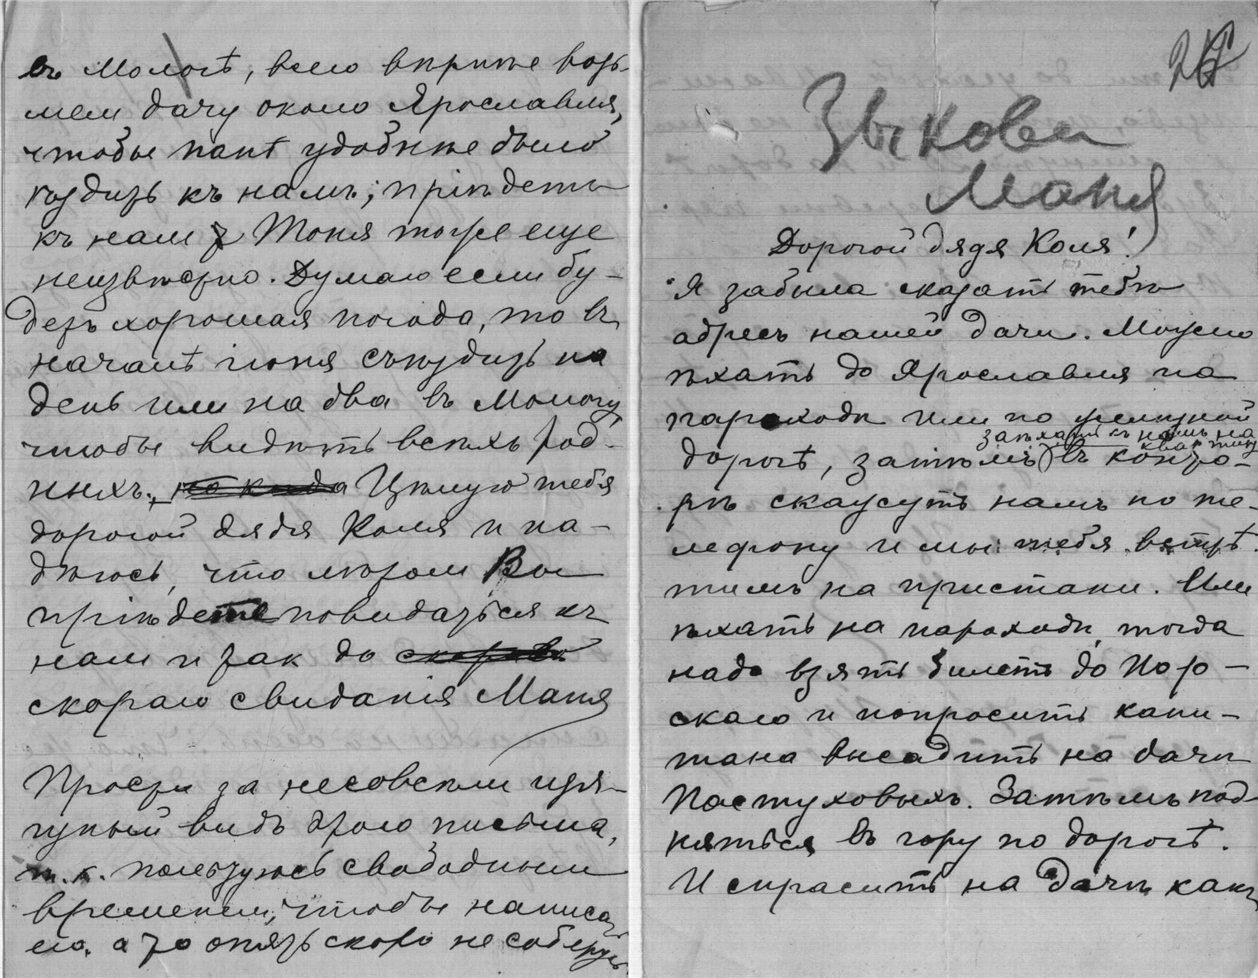 въ Мологѣ, всего вѣрнѣе возь-
мем дачу около Ярославля,
чтобы папѣ удобнѣе было
ѣздить къ намъ; пріѣдетъ
къ нам Тоня тоже еще
неизвѣстно. Думаю если бу-
детъ хорошая погода, то въ
началѣ іюня съѣздить на
день или на два въ Мологу,
чтобы видѣть всѣхъ род-
ныхъ. Цѣлую тебя
дорогой дядя Коля и на-
дѣюсь, что лѣтом Вы
пріѣдете повидаться къ
нам и так до
скораго свиданія Маня
Прости за несовсем изя-
щный видъ этого письма,
т.к. пользуюсь свободным
временем, чтобы написать
его, а то опять скоро не соберусь.
26
Зыкова
Маня
Дорогой дядя Коля!
Я забыла сказать тебѣ
адресъ нашей дачи. Можно
ѣхать до Ярославля на
пароходѣ или по желѣзной
заѣхать къ намъ на
квартиру
дорогѣ, затѣмъ въ конто-
рѣ скажутъ намъ по те-
лефону и мы тебя встрѣ
тимъ на пристани. Или
ѣхать на пароходѣ, тогда
надо взять билетъ до Нор-
скаго и попросить капи-
тана высадить на дачѣ
Пастуховыхъ. Затѣмъ под
няться въ гору по дорогѣ.
И спросить на дачѣ какъ